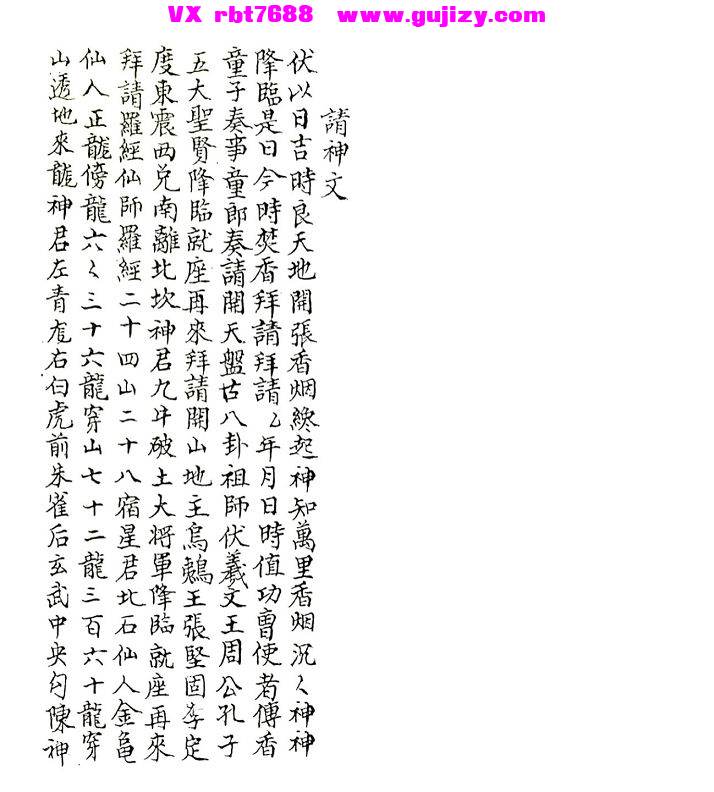 VX rbt7688 www.gujizy.com
請神文
伏以日吉時良天地開張香烟終起神知萬里香烟沉〻神神
降臨是日今時焚香拜請拜請〻年月日時值功曹使者傳香
童子奏事童郎奏請開天盤古八卦祖師伏羲文王周公孔子
五大聖賢降臨就座再來拜請開山地主烏鵝王張堅固李定
度東震西兌南離北坎神君九牛破土大将軍降臨就座再來
拜請羅經仙師羅經二十四山二十八宿星君北石仙人金龟
仙人正龍傍龍六〻三十六龍穿山七十二龍三百六十龍穿
山透地來龍神君左青龙右白虎前朱雀后玄武中央勾陳神